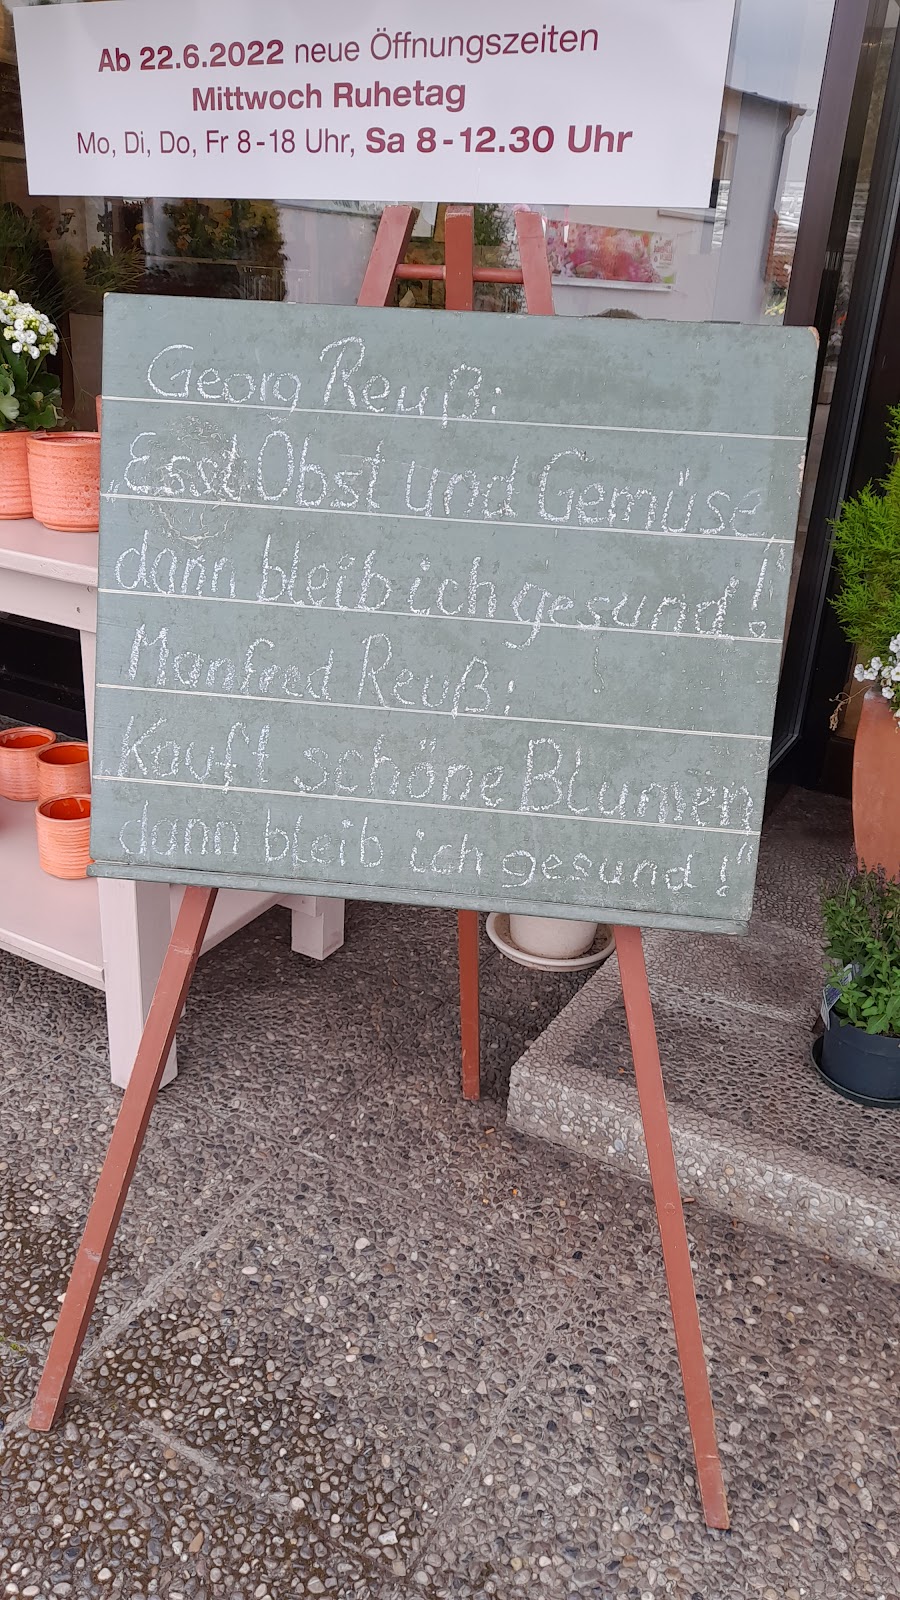 Ab 22.6.2022 neue Öffnungszeiten
Mittwoch Ruhetag
Mo, Di, Do, Fr 8-18 Uhr, Sa 8-12.30 Uhr
Georg Reuß:
„Esst Obst und Gemüse,
dann bleib ich gesund!"
Manfred Reuß:
„Kauft schöne Blumen
dann bleib ich gesund!"